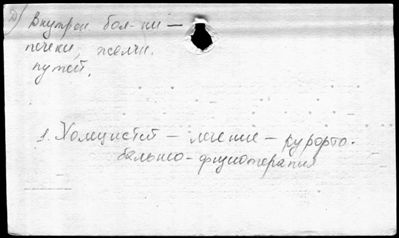 Внутрен бол-ни —
печени, желчн.
путей.
1. Холецистит — лечение — курорто.
бальнео-физиотерапия